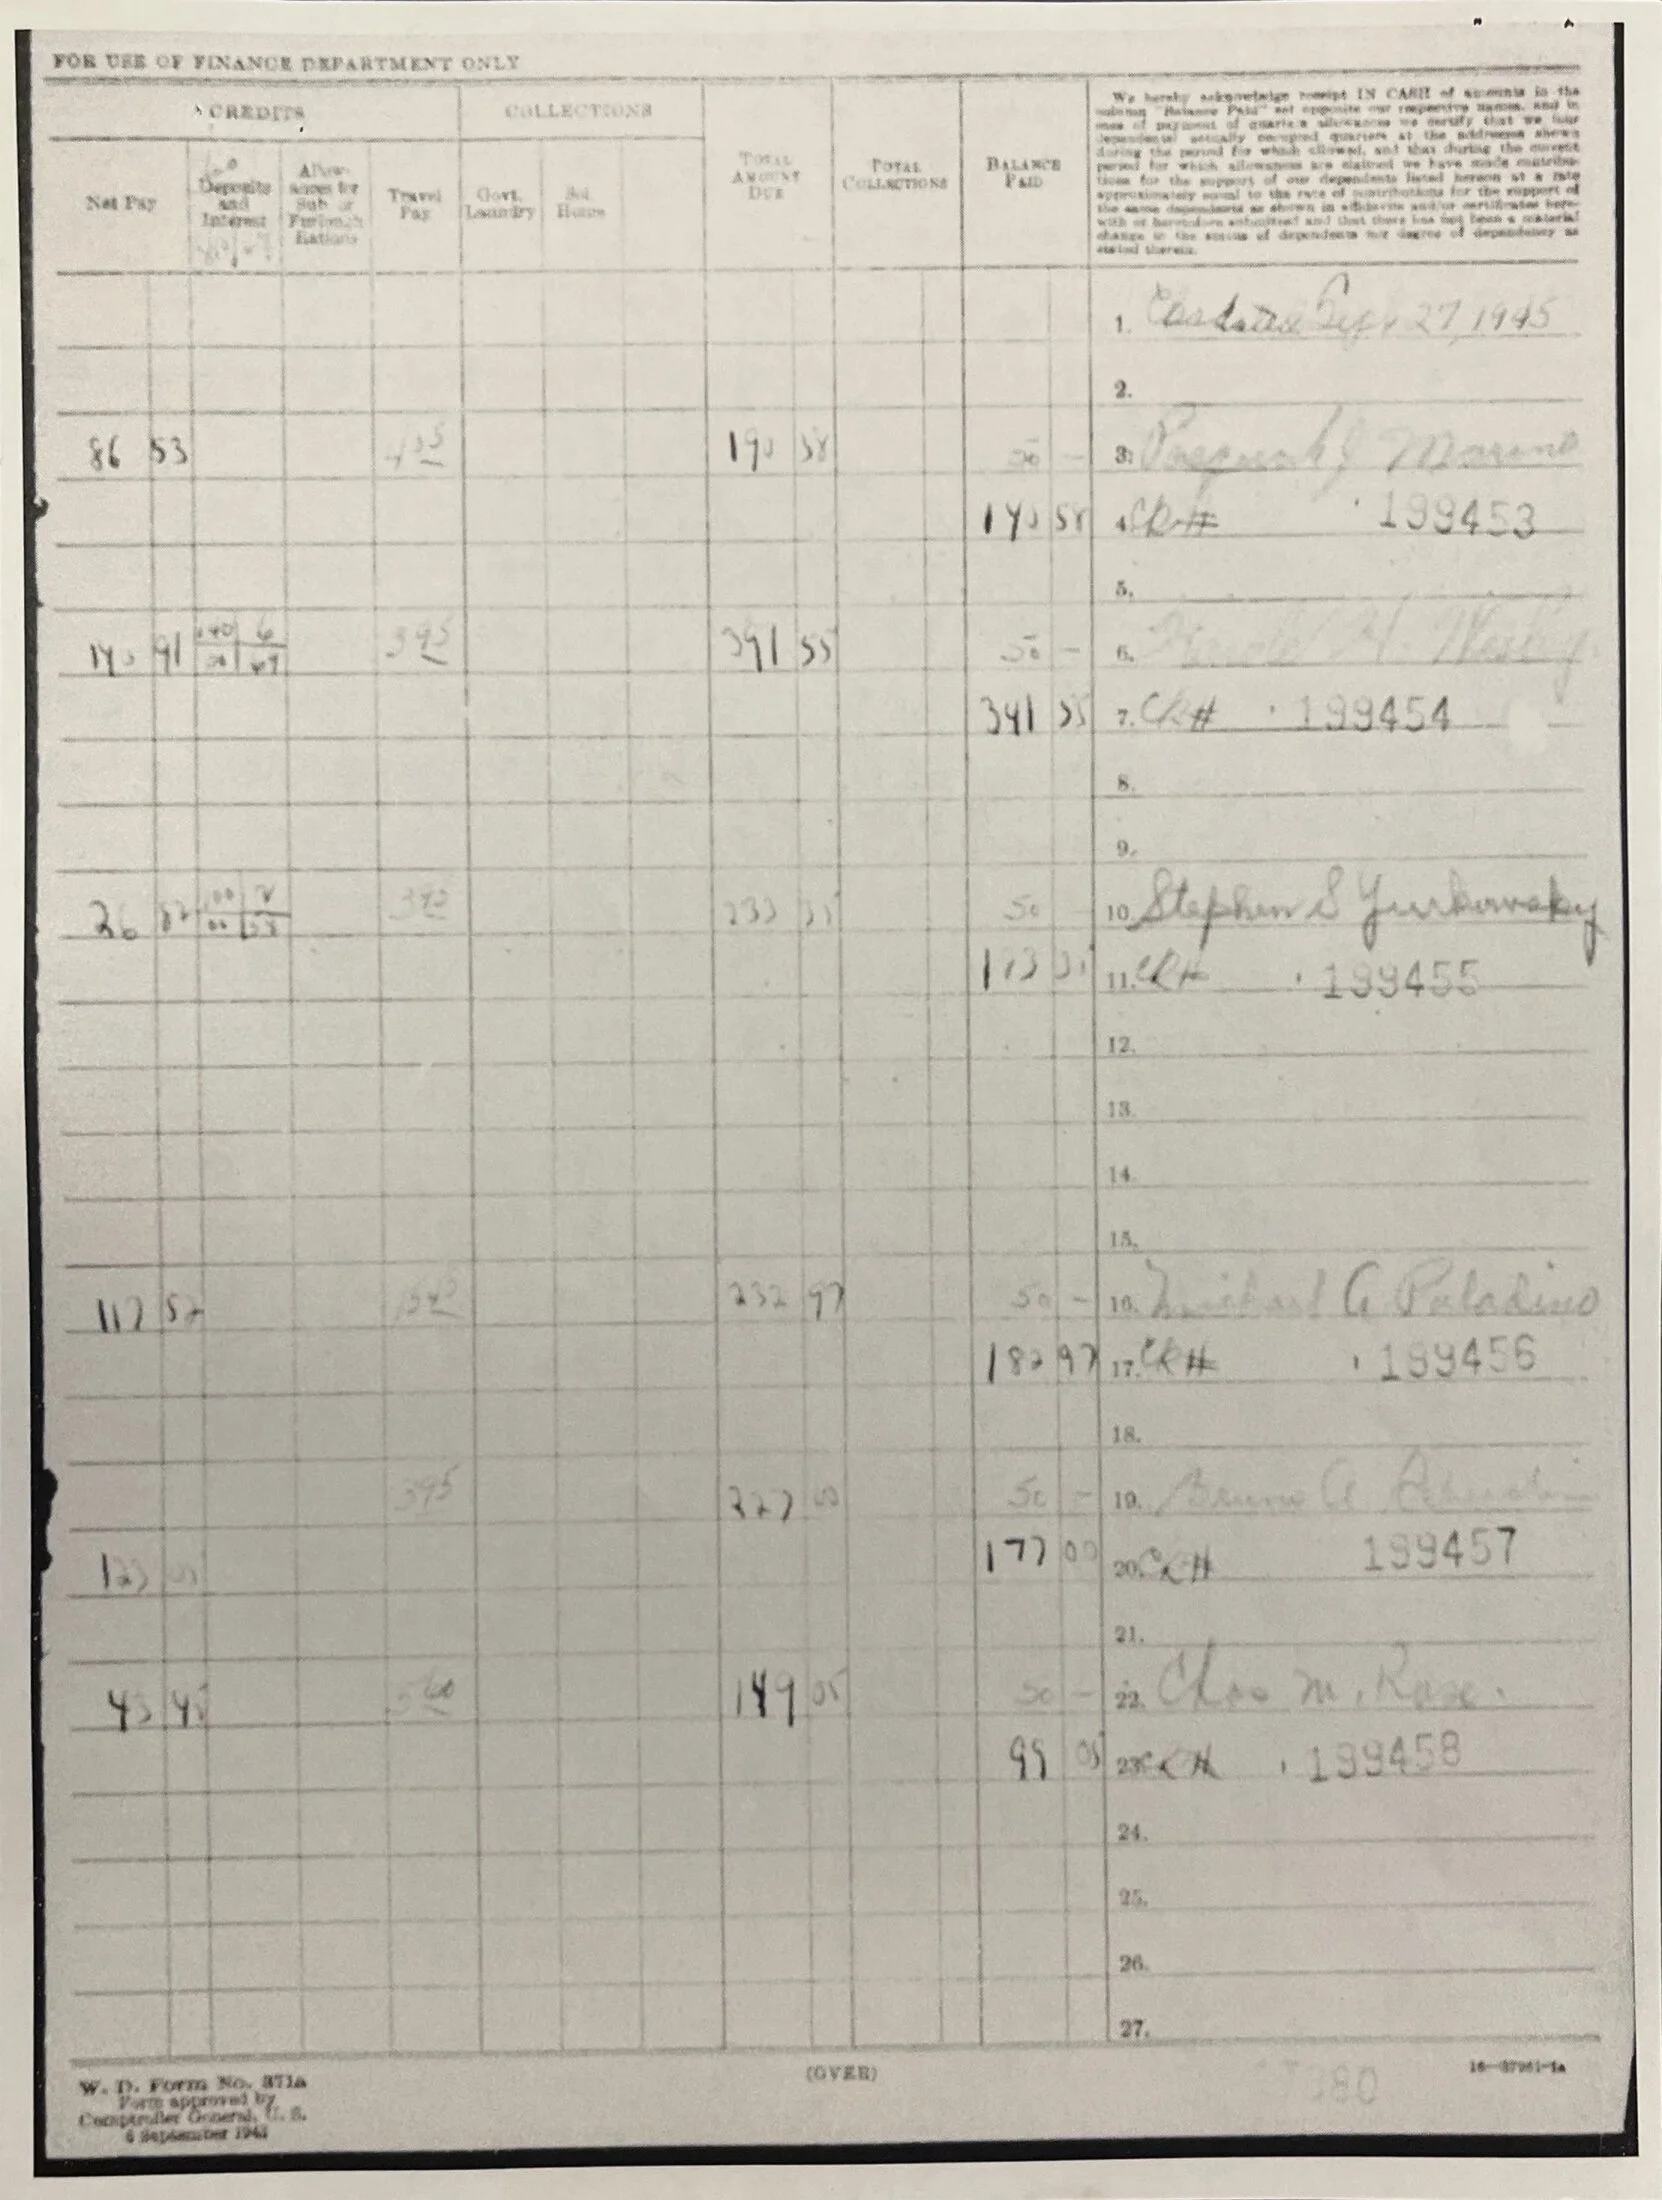 FOR USE OF FINANCE DEPARTMENT ONLY
CREDITS
COLLECTIONS
Net Pay
Deposits and Interest
Allowances for Sub or Furlough Rations
Travel Pay
Govt. Laundry
Sol. Home
TOTAL AMOUNT DUE
TOTAL COLLECTIONS
BALANCE PAID
We hereby acknowledge receipt IN CASH of amounts in the
column "Balance Paid" set opposite our respective names, and in
case of payment of quarters allowances we certify that we
dependents actually occupied quarters at the addresses shown
during the period for which allowed, and that during the current
period for which allowances are claimed we have made contribu-
tions for the support of our dependents listed hereon at a rate
approximately equal to the rate of contributions for the support of
the same dependents as shown in affidavits and/or certificates here-
with or heretofore submitted and that there has not been a material
change in the status of dependents nor degree of dependency as
stated therein.
1. 27, 1945
2.
86 53 190 58 50 - 3. Marino
140 58 4. CK# 199453
5.
91 3 95 391 55 50 - 6. H.
341 55 7. CK# 199454
8.
9.
26 82 50 10. Stephen S Yurkowsky
11. CK# 199455
12.
13.
14.
15.
117 52 232 97 50 - 16. Michael A Paladino
182 97 17. CK# 199456
18.
3 95 227 00 50 - 19. Bruno A
177 00 20. CK# 199457
21.
43 45 5 60 149 05 50 - 22. Chas M. Rose.
99 05 23. CK# 199458
24.
25.
26.
27.
W. D. Form No. 371a
Form approved by
Comptroller General, U. S.
(OVER)
16-37961-1A